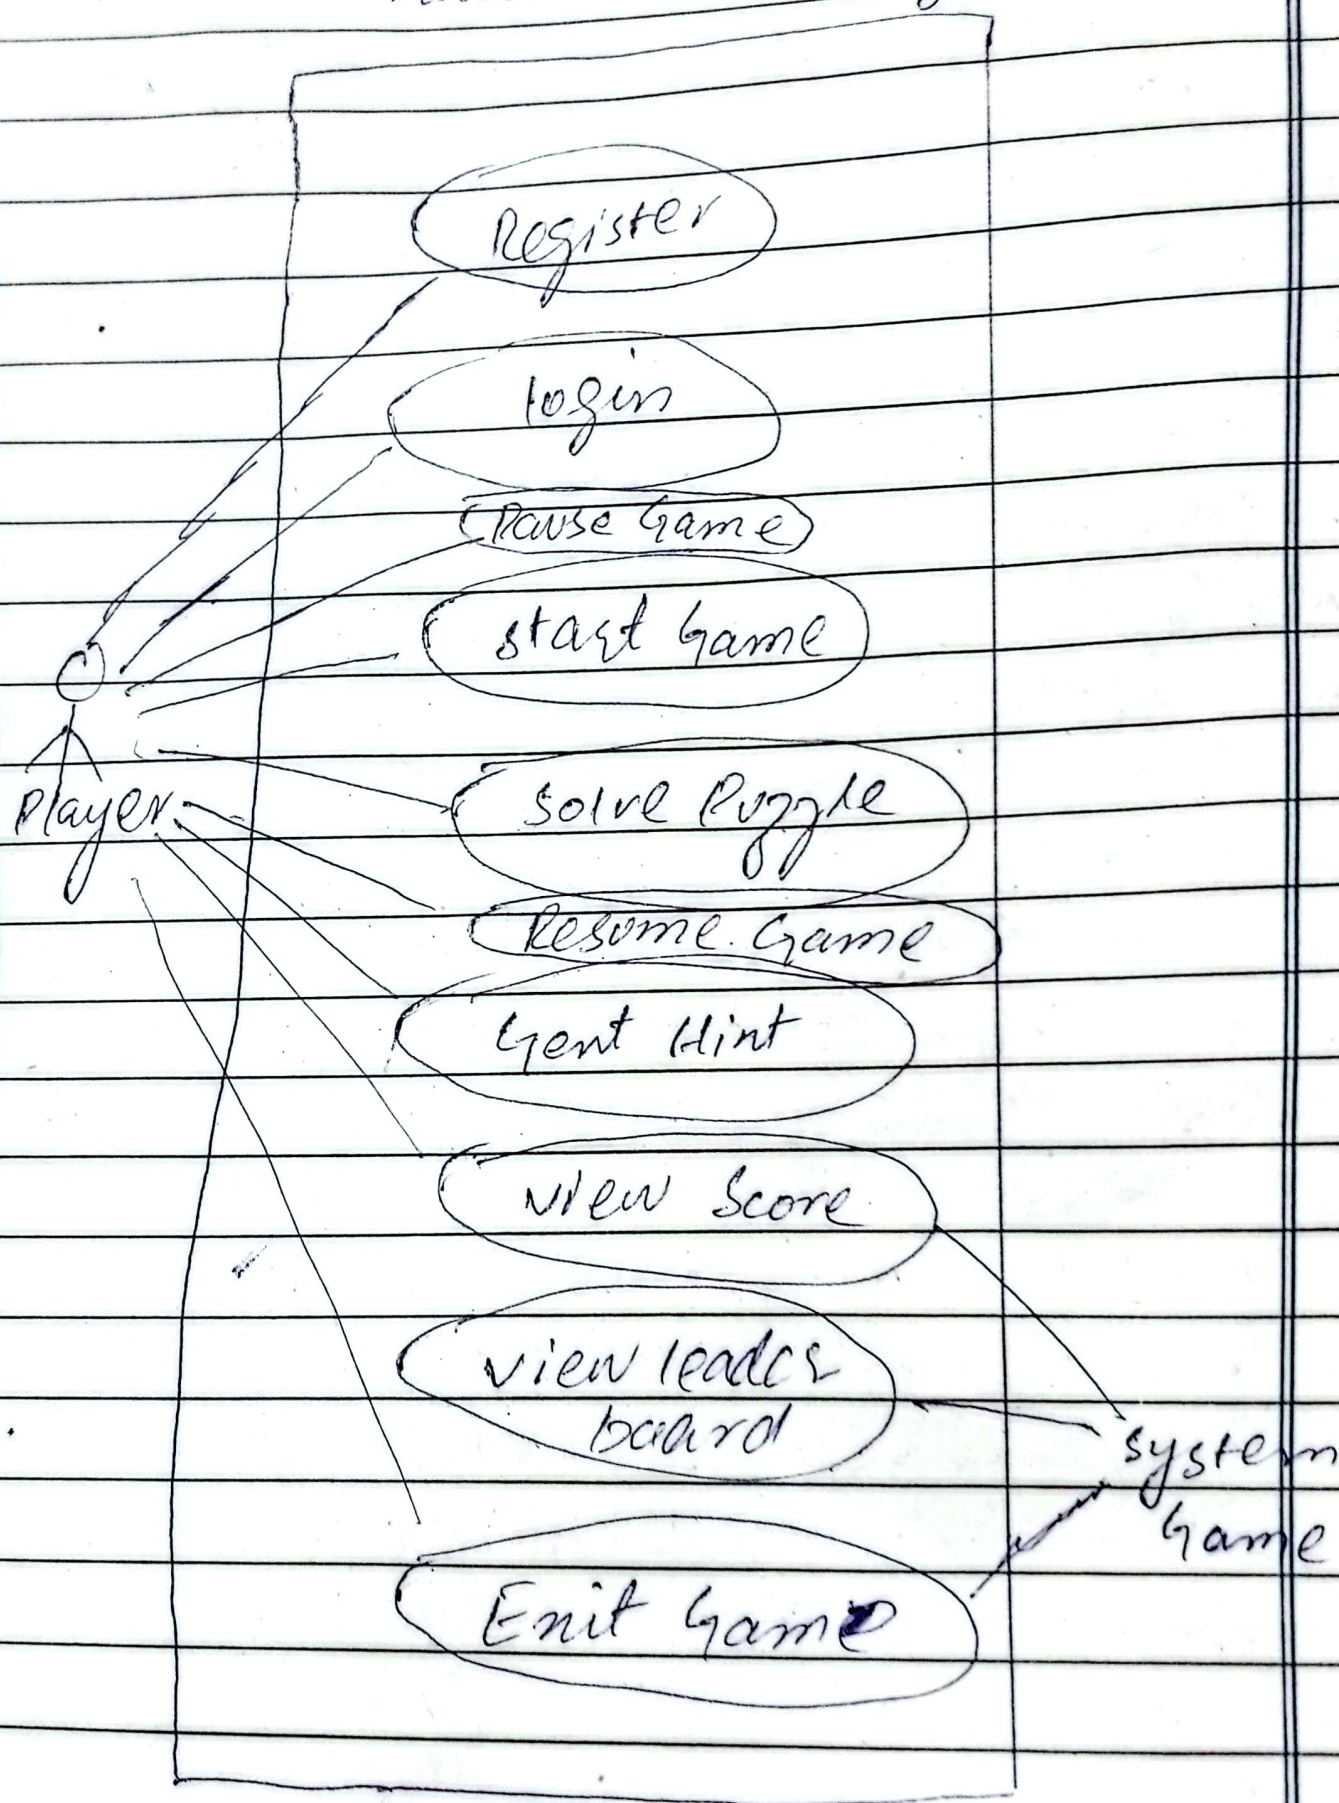 Register
login
Pause Game
start Game
Player
Solve Puzzle
Resume Game
Gent Hint
view Score
view leader
board
system
Game
Exit Game